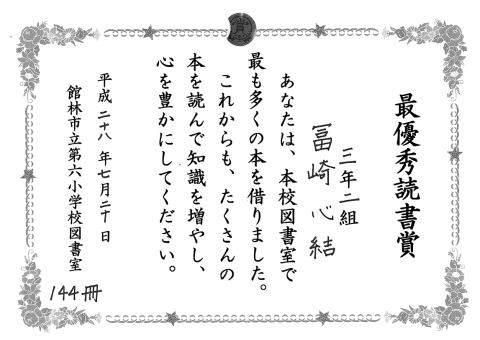 賞
最優秀読書賞
三年二組
冨崎心結
あなたは、本校図書室で
最も多くの本を借りました。
これからも、たくさんの
本を読んで知識を増やし、
心を豊かにしてください。
平成二十八年七月二十日
館林市立第六小学校図書室
144冊